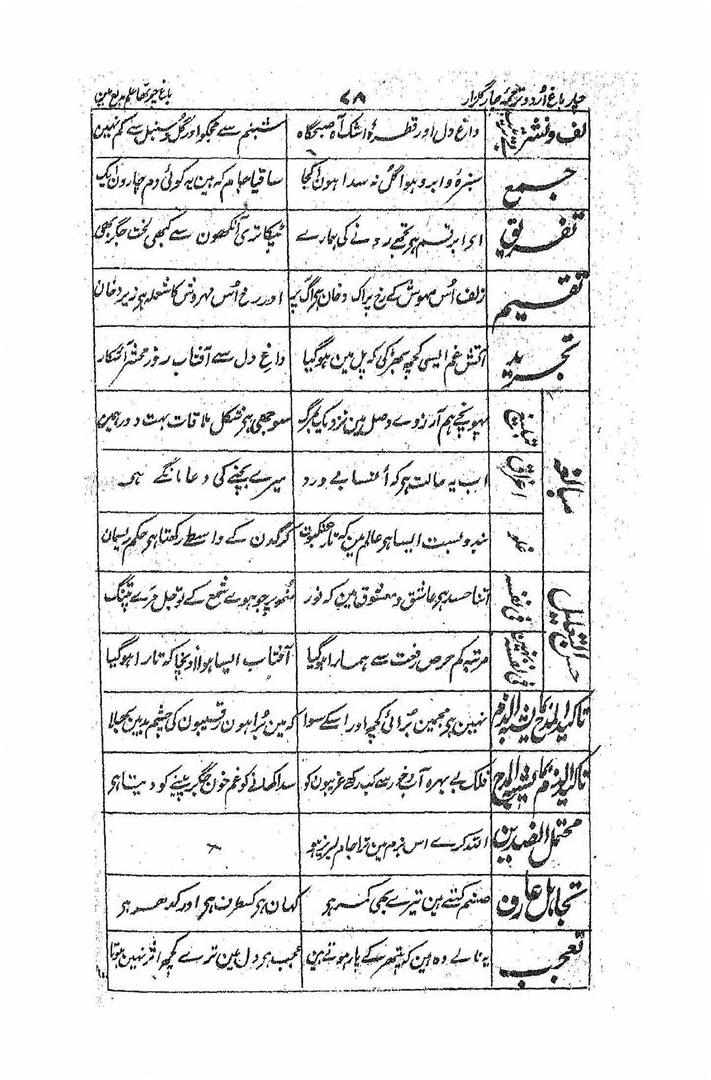 چار باغ اردو ترجمہ چار گلزار ۷۸ باغ چوتھا علم بدیع مین
لف و نشر داغ دل اور قطرۂ اشک آہ صبحگاہ شبنم سے مجکو اور گل و سنبل سے کم نہین
جمع سبزہ و ابر و ہوا گل نہ سدا ہون یکجا ساقیا جام کہ ہین یہ کوئی دم چارون ایک
تفریق ای ابر قسم ہو تجھے رونے کی ہمارے ٹپکا تری آنکھون سے کبھی لخت جگر بھی
تقسیم زلف اس مہوش کے رخ پر اک دخان ہو آگ پہ اور رخ اس مہروش کا شعلہ ہو زیر دخان
تجرید آتش غم ایسی کچھ بھڑکی کہ پل مین ہو گیا داغ دل سے آفتاب روز محشر آشکار
مبالغہ تبلیغ پہونچے ہم آرزوے وصل مین نزدیک بمرگ سوجھی ہو شکل ملاقات بہت دور ہمین
اغراق اب یہ حالت ہو کہ اُلٹا بے درد میرے بچنے کی دعا مانگے ہی
غلو بند و بست ایسا ہو عالم مین کہ تار عنکبوت کرگدن کے واسطے رکھتا ہو حکم ریسمان
حسن التعلیل فی نفسہ اتنا حسد ہو عاشق و معشوق مین کہ نور منھ پر جو ہووے شمع کے تو جل مرے پتنگ
فی نفسہ مرتبہ کم حرص رفعت سے ہمارا ہو گیا آفتاب ایسا ہوا اونچا کہ تارا ہو گیا
تاکید المدح بما یشبہ الذم نہین ہو مجھمین بُرائی کچھ اور اسکے سوا کہ مین بُرا ہون رقیبون کی چشم بدبین بھلا
تاکید الذم بما یشبہ المدح فلک بے بہرہ آب و خورسے کب رکھے غریبون کو سدا کھانے کو غم خون جگر پینے کو دیتا ہو
محتمل الضدین اللہ کرے اس بزم مین ترا جام لبریز ہو ×
تجاہل عارف صنم کہتے ہین تیرے بھی کمر ہو کہان ہو کسطرف ہو اور کدھر ہو
تعجب یہ نالے وہ ہین کہ پتھر کے پار ہوتے ہین عجب ہو دل مین ترے کچھ اثر نہین ہوتا